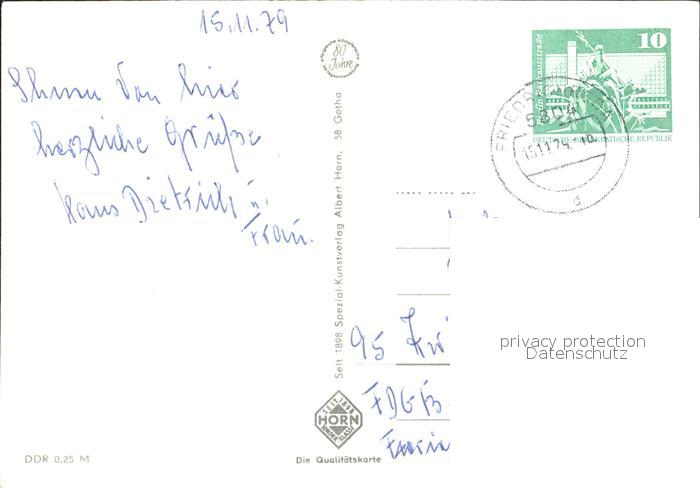 15.11.79
Ihnen von hier
herzliche Grüße
Hans Dietrich u.
Frau.
80 Jahre
Seit 1898 Spezial-Kunstverlag Albert Horn, 58 Gotha
10
DEUTSCHE DEMOKRATISCHE REPUBLIK
5804
15.11.79.-10
d
95 Zwi
FDGB-
privacy protection
Datenschutz
SEIT 1898
HORN
DDR 0,25 M
Die Qualitätskarte